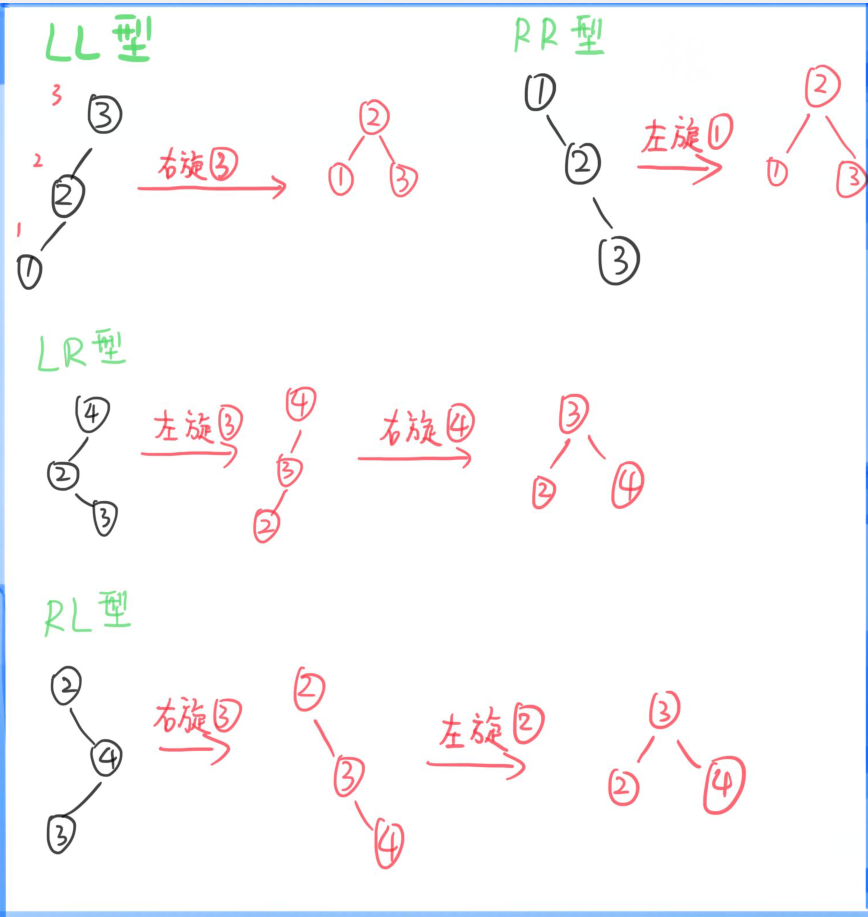 LL型
3 ③
2 ②
1 ①
右旋③
②
① ③
RR型
①
②
③
左旋①
②
① ③
LR型
④
②
③
左旋③
④
③
②
右旋④
③
② ④
RL型
②
④
③
右旋③
②
③
④
左旋②
③
② ④